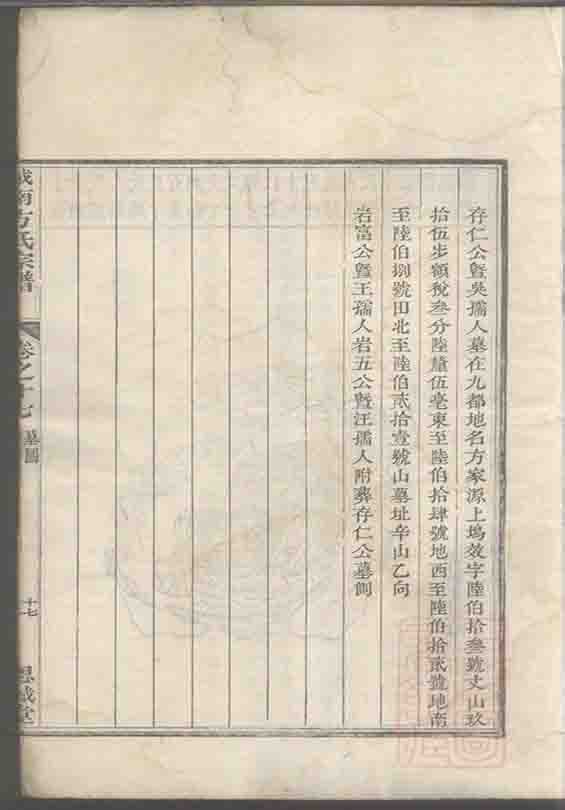 存仁公曁吳孺人墓在九都地名方家源上塢效字陸伯拾叁號丈山玖
拾伍步額稅叁分陸釐伍毫東至陸伯拾肆號地西至陸伯拾貳號地南
至陸伯捌號田北至陸伯貳拾壹號山墓址辛山乙向
岩富公曁王孺人岩五公曁汪孺人附葬存仁公墓側
城南方氏宗譜
卷之十七
墓圖
十七
思誠堂